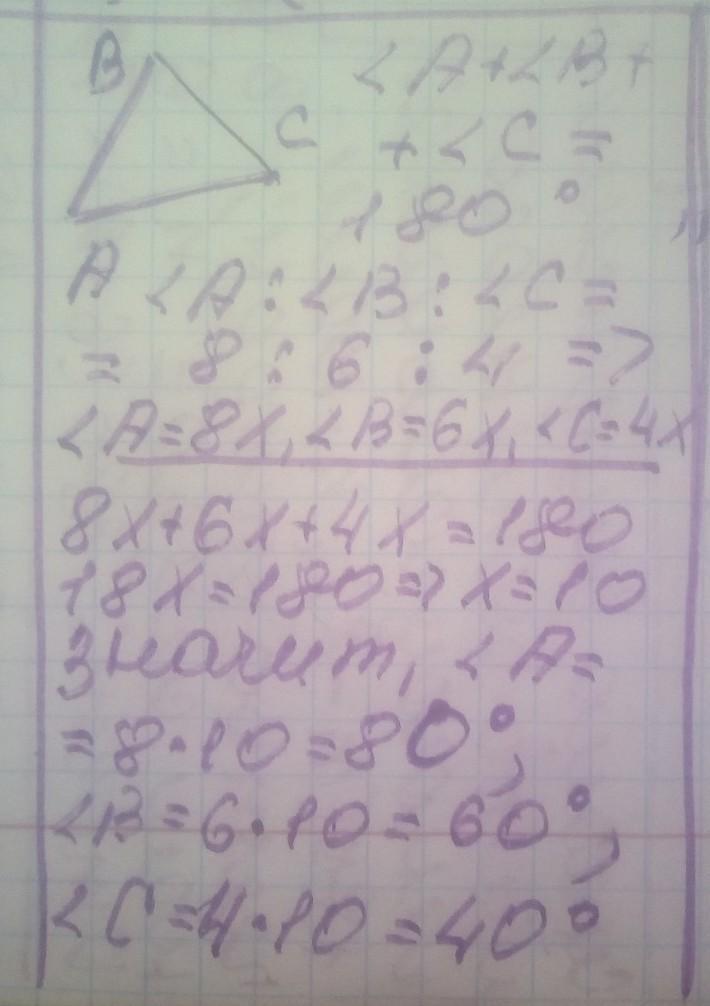 B
∠A+∠B+
C
+∠C=
180°
A
∠A:∠B:∠C=
= 8 : 6 : 4 =>
∠A=8x, ∠B=6x, ∠C=4x
8x+6x+4x=180
18x=180=>x=10
Значит, ∠A=
=8·10=80°,
∠B=6·10=60°,
∠C=4·10=40°